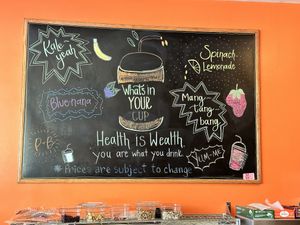 Kale
yeah
Spinach
Lemonade
What's in
YOUR
CUP
Blue-nana
Mang-
Tang-
bang
P-B-
Health is Wealth
you are what you drink
YUM-ME
* Prices are subject to change